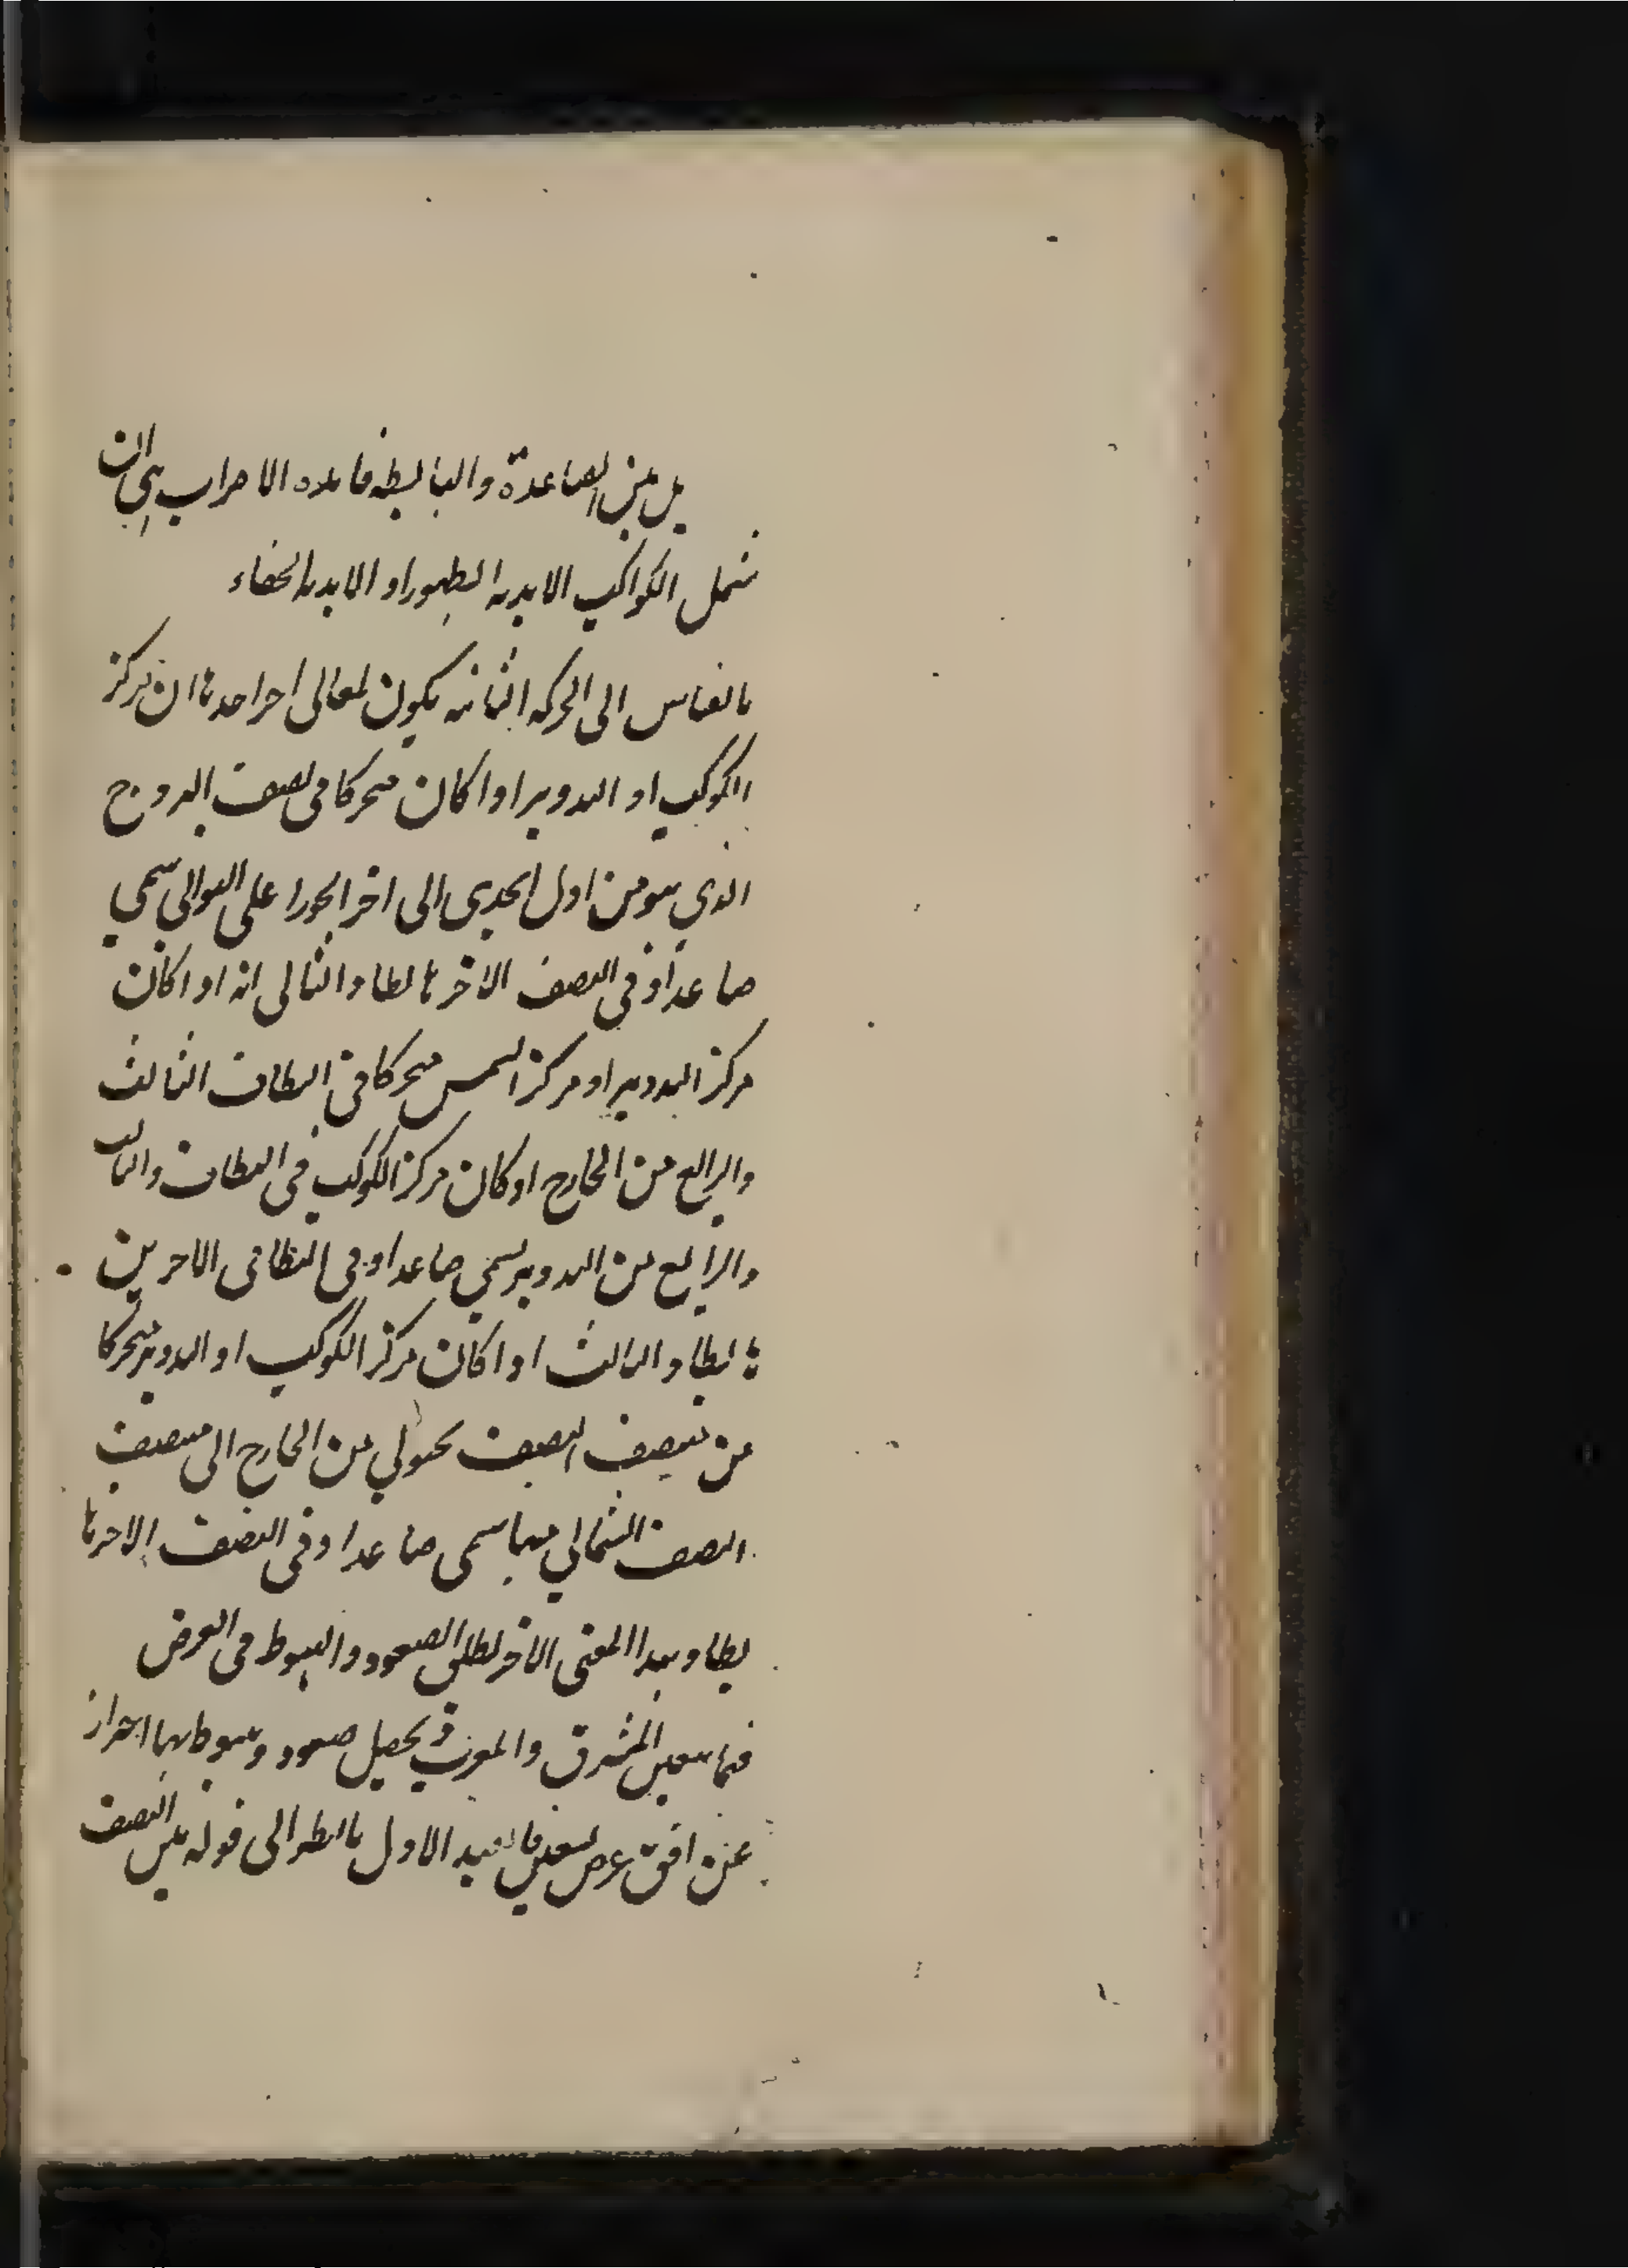 بل بين الصاعدة والهابطة فائده الاحراب يجي ان
يشمل الكواكب الابدية الظهور او الابدية الخفاء
بالقياس الى الحركة الثانية يكون لمعانى اخر احدها ان مركز
الكوكب او التدوير اذا كان متحركا فى نصف البروج
الذي هو من اول الجدى الى اخر الجوزا على التوالى سمي
صاعدا وفى النصف الاخر هابطا والثانى انه اذا كان
مركز التدوير او مركز الشمس متحركا فى النطاق الثالث
والرابع من الخارج او كان مركز الكوكب فى النطاق الثالث
والرابع من التدوير سمي صاعدا وفى النطاقين الاخرين
هابطا والثالث اذا كان مركز الكوكب او التدوير متحركا
من منتصف النصف الجنوبي من الخارج الى منتصف
النصف الشمالي منها سمى صاعدا وفى النصف الاخر ها
بطا وبهذا المعنى الاخر يطلق الصعود والهبوط فى العرض
فيما بين المشرق والمغرب يحصل صعود وهبوط بهما احتراز
عن افق عرض تسعين فالقيد الاول بالنظر الى قوله بين النصف